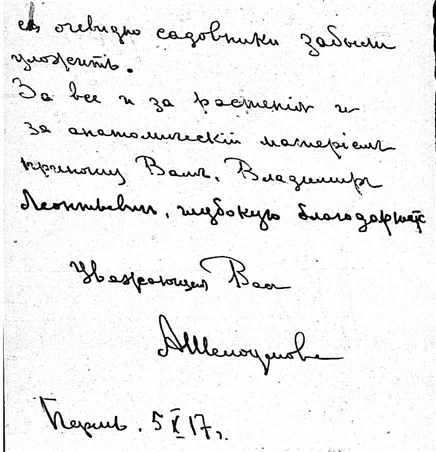 ея очевидно садовники забыли
уложить.
За все и за растенія и
за анатомическій матеріалъ
приношу Вамъ, Владимиръ
Леонтьевич, глубокую благодарность
Уважающая Васъ
Пермь. 5 X 17 г.